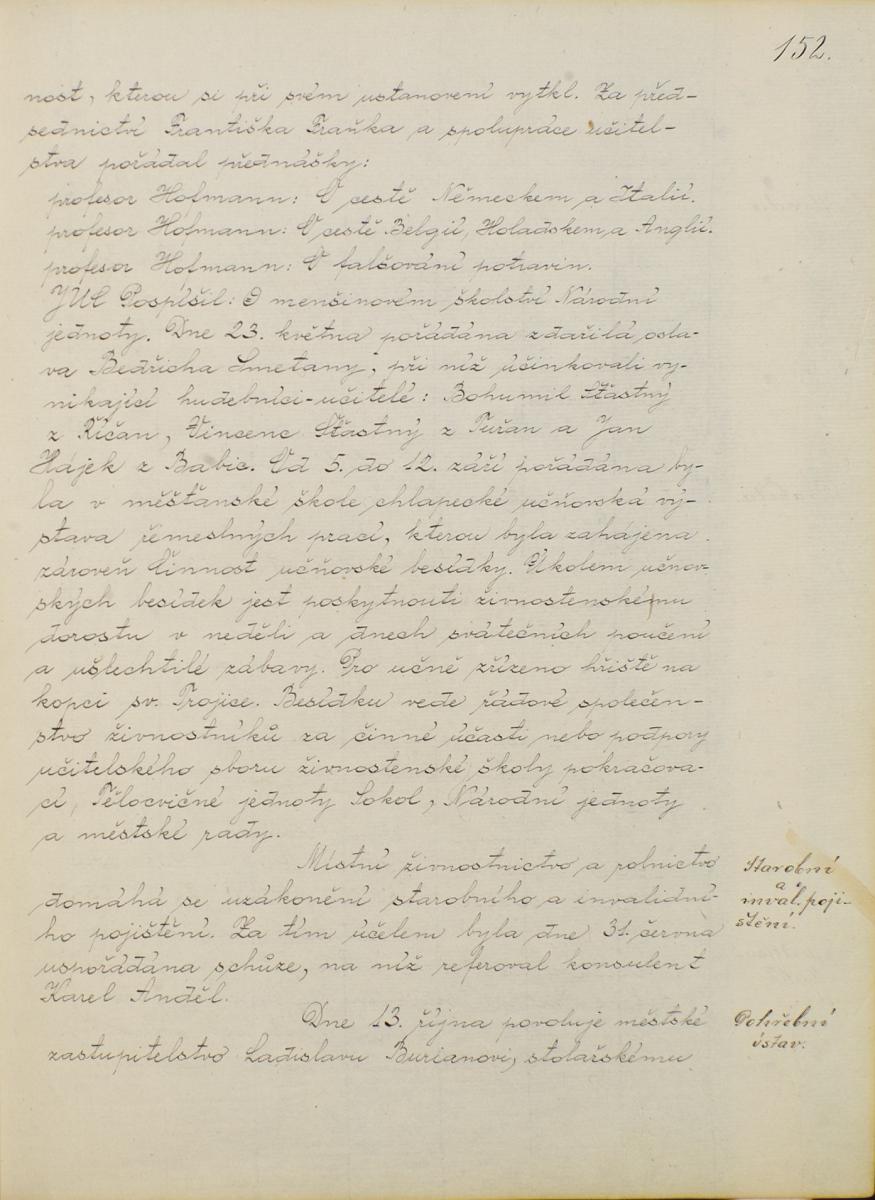 152.
nost, kterou si při svém ustanovení vytkl. Za před-
sednictví Františka Fraňka a spolupráce učitel-
stva pořádal přednášky:
profesor Hofmann: O cestě Německem a Italií.
profesor Hofmann: O cestě Belgií, Holadskem a Anglií.
profesor Hofmann: O falšování potravin.
JUC Pospíšil: O menšinovém školství Národní
jednoty. Dne 23. května pořádána zdařilá osla-
va Bedřicha Smetany, při níž účinkovali vy-
nikající hudebníci-učitelé: Bohumil Šťastný
z Říčan, Vincenc Šťastný z Tuřan a Jan
Hájek z Babic. Od 5. do 12. září pořádána by-
la v měšťanské škole chlapecké učňovská vý-
stava řemeslných prací, kterou byla zahájena
zároveň činnost učňovské besídky. Úkolem učňov-
ských besídek jest poskytnouti živnostenskému
dorostu v neděli a dnech svátečních poučení
a ušlechtilé zábavy. Pro učně zřízeno hřiště na
kopci sv. Trojice. Besídku vede řádové společen-
stvo živnostníků za činné účasti nebo podpory
učitelského sboru živnostenské školy pokračova-
cí, Tělocvičné jednoty Sokol, Národní jednoty
a městské rady.
Místní živnostnictvo a rolnictvo
domáhá se uzákonění starobního a invalidní-
ho pojištění. Za tím účelem byla dne 31. června
uspořádána schůze, na níž referoval konsulent
Karel Anděl.
Starobní
a
inval. poji-
štění.
Dne 13. října povoluje městské
zastupitelstvo Ladislavu Burianovi, stolařskému
Pohřební
ústav.